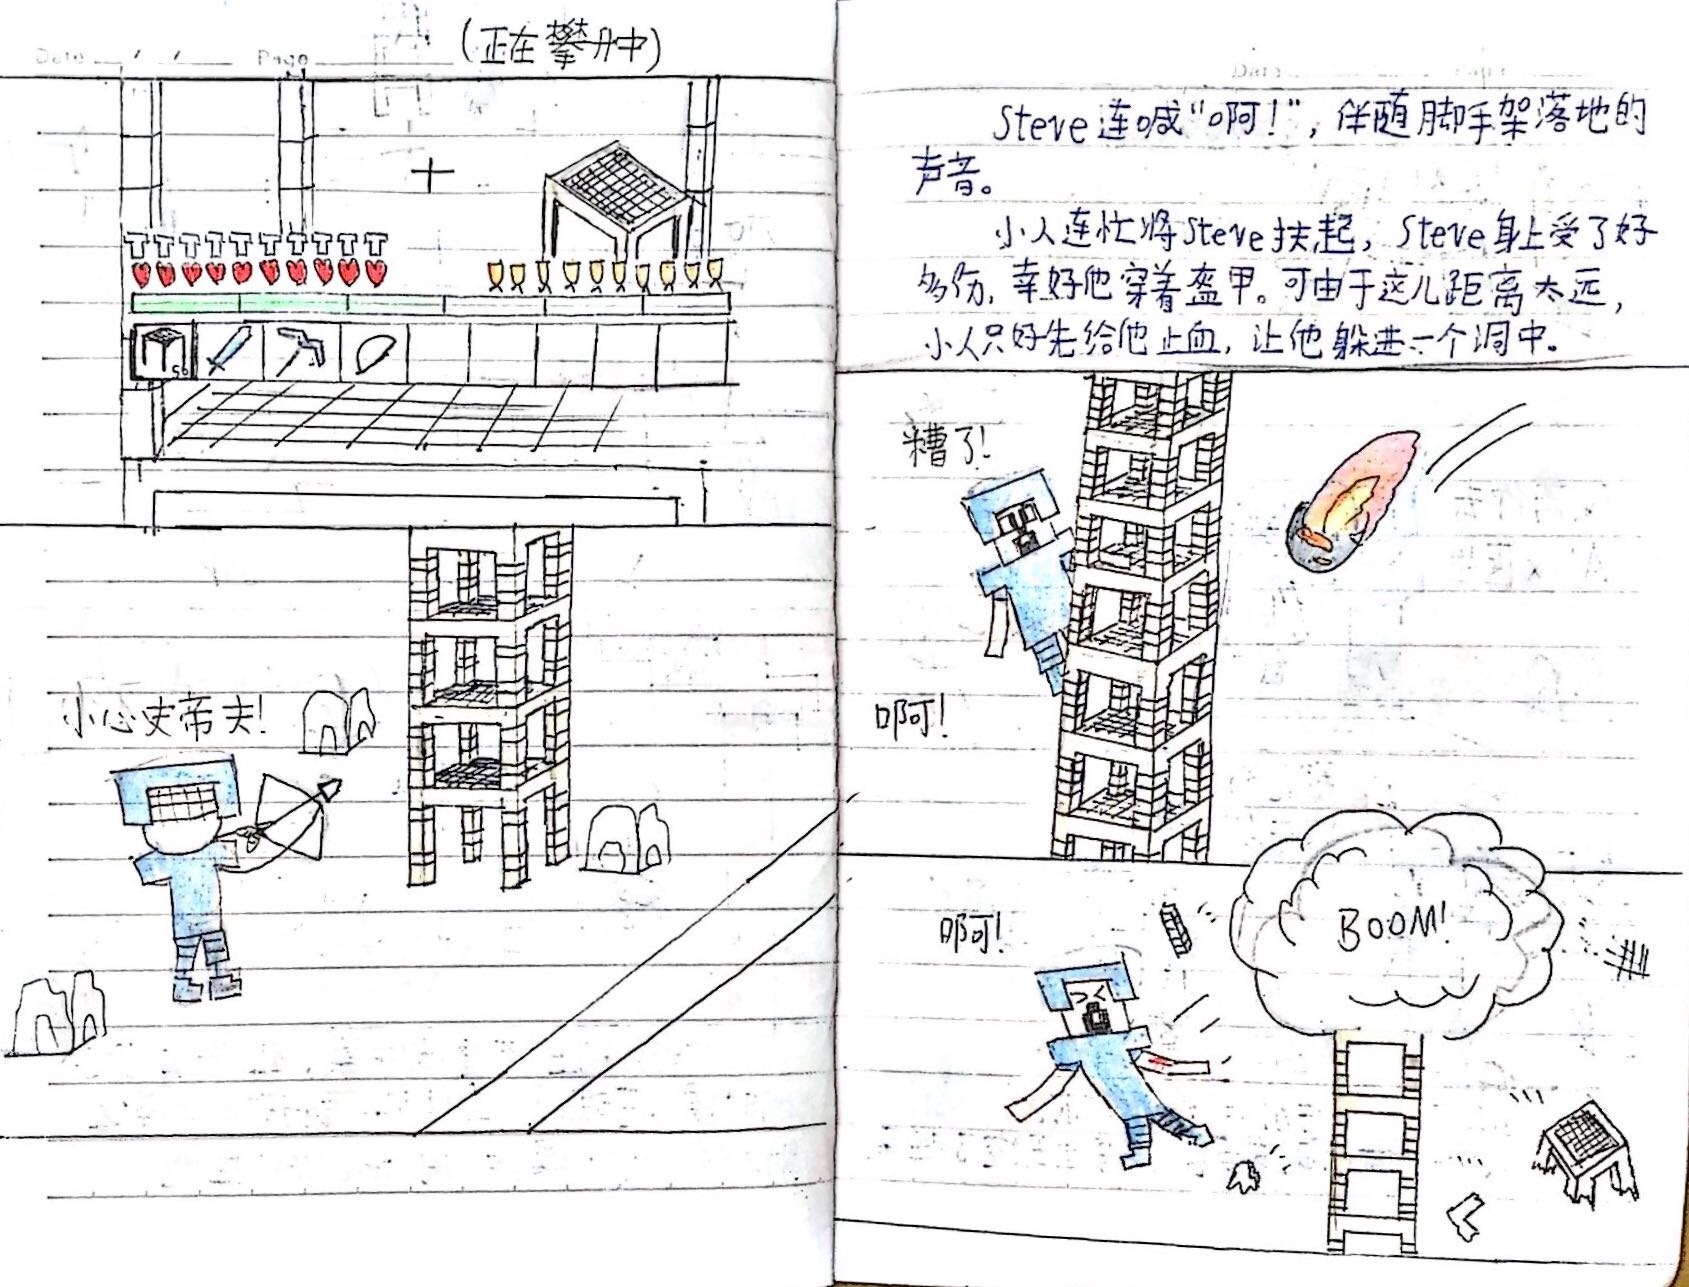 Date Page
(正在攀升中)
56
小心史帝夫!
Steve连喊“啊!”,伴随脚手架落地的
声音。
小人连忙将Steve扶起,Steve身上受了好
多伤,幸好他穿着盔甲。可由于这儿距离太远,
小人只好先给他止血,让他躲进一个洞中。
糟了!
啊!
啊!
BOOM!